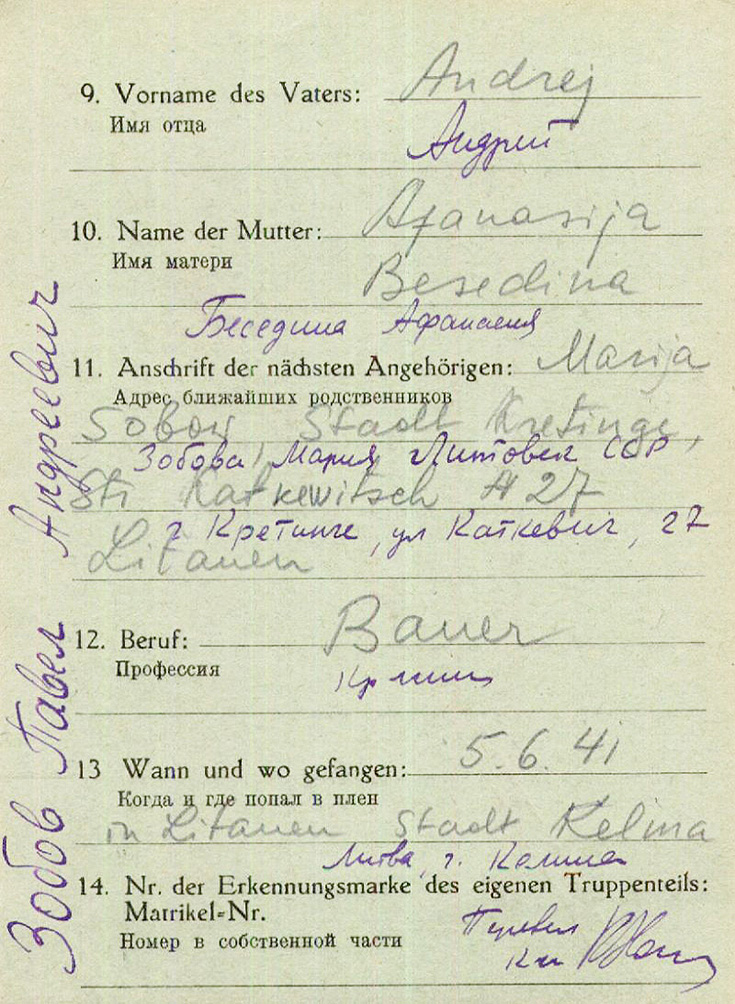 9. Vorname des Vaters: Andrej
Имя отца
Андрий
10. Name der Mutter: Afanasija
Имя матери
Besedina
Беседина Афанасия
11. Anschrift der nächsten Angehörigen: Marija
Адрес ближайших родственников
Sobow Stadt Kretinge,
Зобова Мария Литовск ССР
Str Katkewitsch # 27
г Кретинге, ул Каткевич, 27
Litauen
12. Beruf: Bauer
Профессия
13 Wann und wo gefangen: 5.6.41
Когда и где попал в плен
in Litauen Stadt Kelma
Литва, г.
14. Nr. der Erkennungsmarke des eigenen Truppenteils:
Matrikel-Nr.
Номер в собственной части
Зобов Павел Андреевич